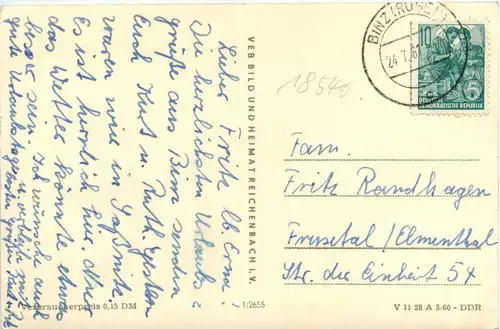 Lieber Fritz lb. Erna!
Die herzlichsten Urlaubs-
grüße aus Binz senden
Euch Kurt u. Ruth. Gestern
waren wir in Saßnitz.
Es ist herrlich hier. Nur
das Wetter könnte etwas
besser sein. Ich wünsche auch
gute
VEB BILD UND HEIMAT REICHENBACH I. V.
1/2655
Verbraucherpreis 0,15 DM
BINZ (RÜGEN)
24.7.6
10
5
DEUTSCHE DEMOKRATISCHE REPUBLIK
18546
Fam.
Fritz Randhagen
Freital/Elmenthal
Str. der Einheit 54
V 11 28 A 3/60 - DDR